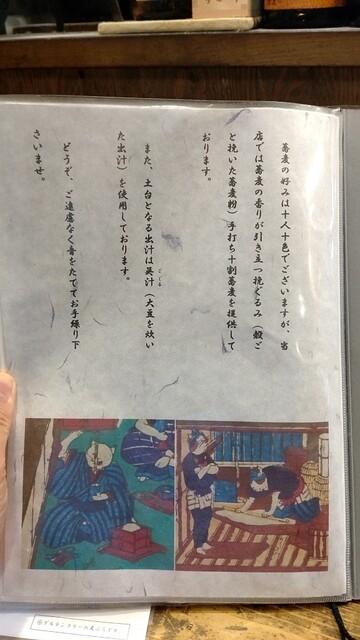 蕎麦の好みは十人十色でございますが、当
店では蕎麦の香りが引き立つ挽ぐるみ（殻ご
と挽いた蕎麦粉）手打ち十割蕎麦を提供して
おります。
また、土台となる出汁は呉汁（大豆を炊い
ごじる
た出汁）を使用しております。
どうぞ、ご遠慮なく音をたててお手繰り下
さいませ。
グルテンフリーの